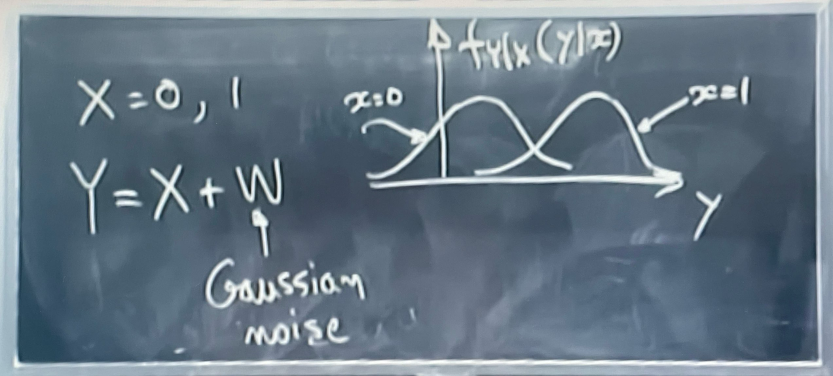 X = 0, 1
Y = X + W
Gaussian
noise
f_{Y|X}(y|x)
x=0
x=1
y